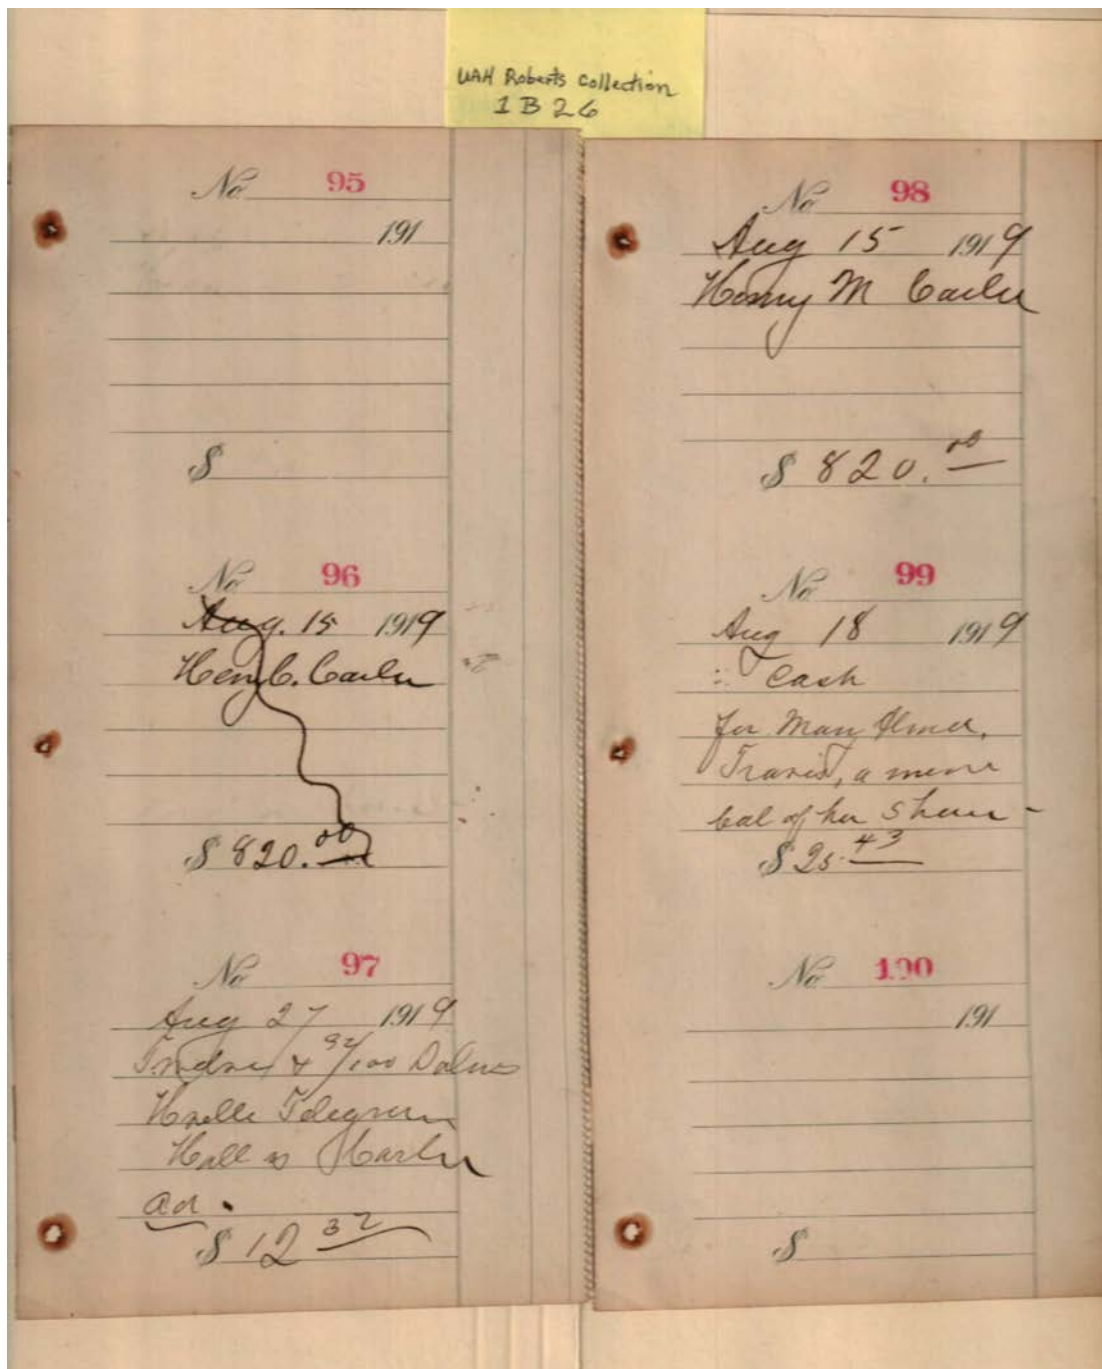 UAH Roberts Collection
1 B 26
No 95
191
$
No 96
Aug. 15 1919
Henry C. Carter
$ 820.00
No 97
Aug 27 1919
Twelve & 32/100 Dolars
Hville Telegram
Hall vs
ad.
$ 12 32
No 98
Aug 15 1919
Henry M Carter
$ 820.00
No 99
Aug 18 1919
Cash
for Mary
Travis, a minor
bal of her Share
$ 25.43
No 100
191
$